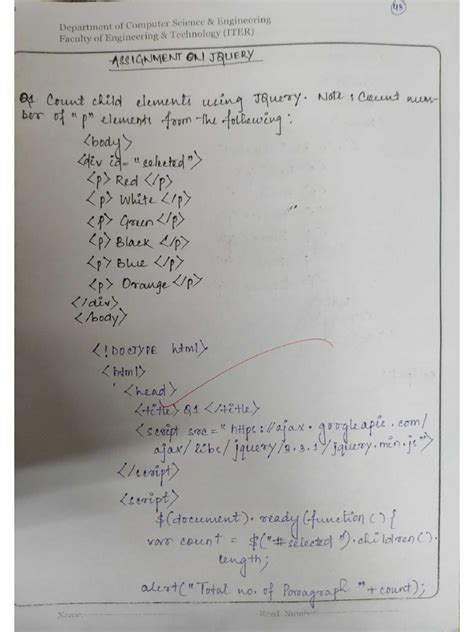 48
Department of Computer Science & Engineering
Faculty of Engineering & Technology (ITER)
ASSIGNMENT ON JQUERY
Q1 Count child elements using JQuery. Note: Count num-
ber of "p" elements from the following:
<body>
<div id="selected">
<p> Red </p>
<p> White </p>
<p> Green </p>
<p> Black </p>
<p> Blue </p>
<p> Orange </p>
</div>
</body>
<!DOCTYPE html>
<html>
<head>
<title> Q1 </title>
<script src="https://ajax.googleapic.com/
ajax/libs/jquery/3.3.1/jquery.min.js">
</script>
<script>
$(document).ready(function(){
var count = $("#selected").children().
length;
alert("Total no. of Paragraph "+count);
Name
Regd. Number